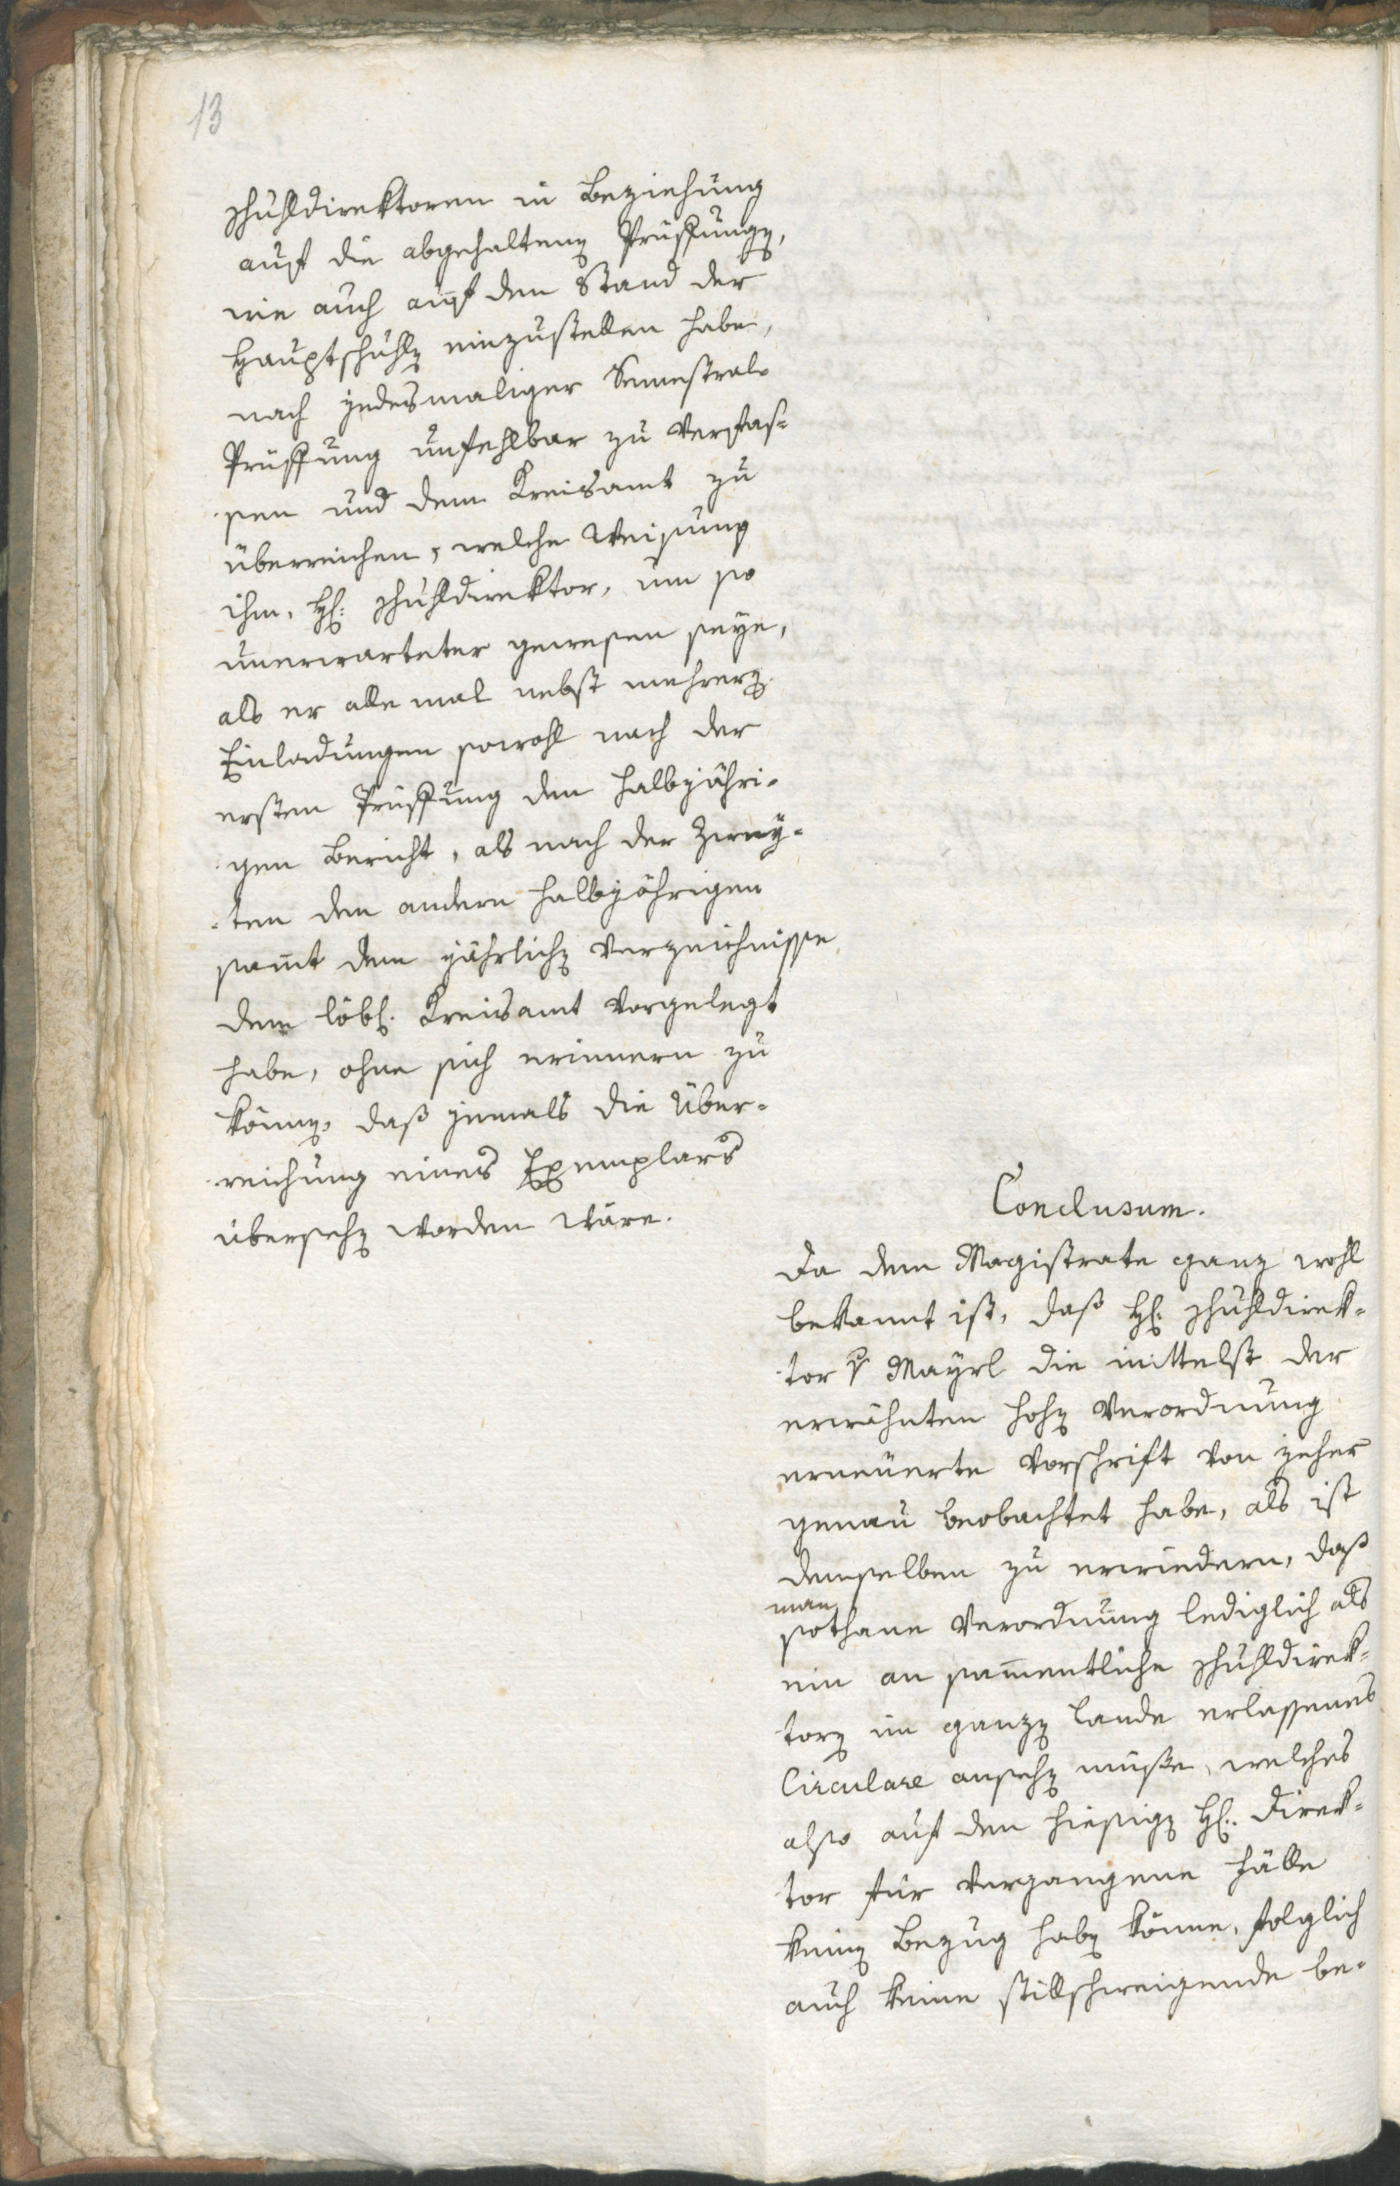 13
Schuldirektoren in Beziehung
auf die abgehalteng Prüffungg,
wie auch auf den Stand der
Hauptschulg einzustellen habe,
nach jedesmaliger Semestral-
Prüffung unfehlbar zu verfas-
sen und dem Kreisamt zu
überreichen, welche Weisung
ihm, Hl: Schuldirektor, um so
unerwarteter gewesen seye,
als er alle mal nebst mehrerg
Einladungen sowohl nach der
ersten Prüffung den halbjähri-
gen Bericht, als nach der zwey-
ten den andern halbjährigen
samt dem jährlichg Verzeichnisse
dem löbl. Kreisamt vorgelegt
habe, ohne sich erinnern zu
könng, daß jemals die Über-
reichung eines Exemplars
übersehg worden wäre.
Conclusum.
Da dem Magistrate ganz wohl
bekannt ist, daß Hl: Schuldirek-
tor P Mayrl die mittelst der
erwähnten hohg Verordnung
erneuerte Vorschrift von jeher
genau beobachtet habe, als ist
demselben zu erwiedern, daß
man
sothane Verordnung lediglich als
ein an sammentliche Schuldirek-
torg im ganzg Lande erlassenes
Circulare ansehg müße, welches
also auf den hiesigg Hl: Direk-
tor für vergangene Fälle
keing Bezug habg könne, folglich
auch keine stillschweigende be-